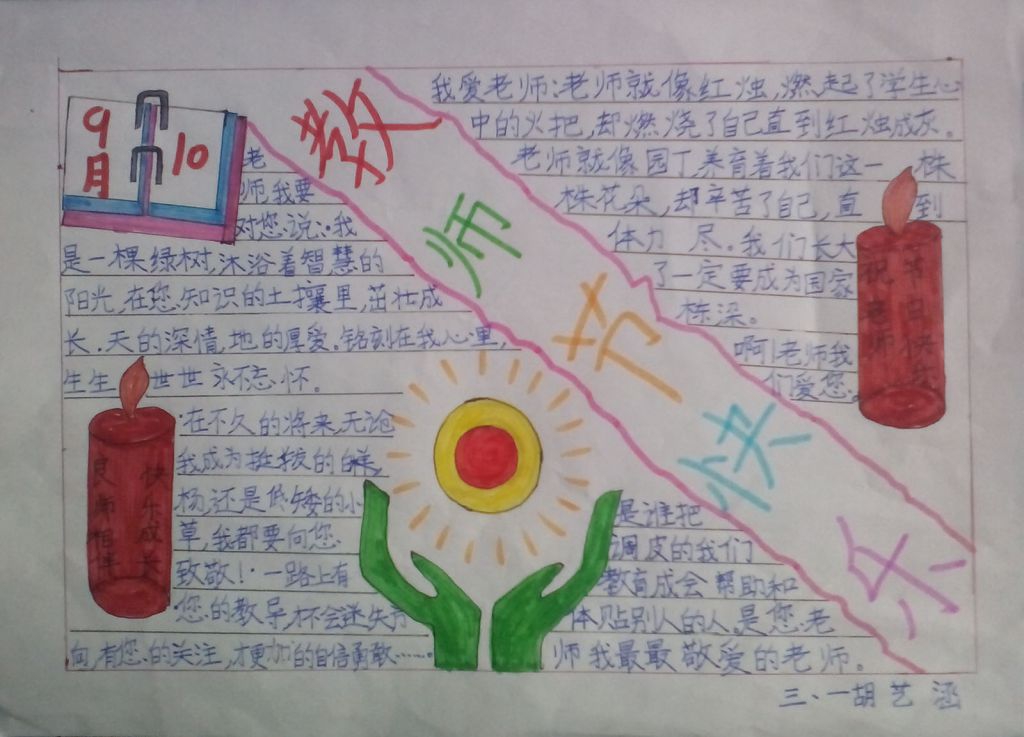 9月10
教师节快乐
老
师,我要
对您说:我
是一棵绿树,沐浴着智慧的
阳光,在您知识的土壤里,茁壮成
长.天的深情,地的厚爱。铭刻在我心里,
生生世世永不忘怀。
在不久的将来,无论
我成为挺拔的白杨
杨,还是低矮的小
草,我都要向您
致敬!一路上有
您的教导,不会迷失方
向,有您的关注,才更加的自信勇敢……
我爱老师:老师就像红烛,燃起了学生心
中的火把,却燃烧了自己直到红烛成灰。
老师就像园丁,养育着我们这一株
株花朵,却辛苦了自己,直到
体力尽。我们长大
了一定要成为国家
栋梁。
啊!老师我
们爱您。
是谁把
调皮的我们
教育成会帮助和
体贴别人的人,是您老
师我最最敬爱的老师。
良师相伴
快乐成长
祝老师
节日快乐
三、一胡艺涵